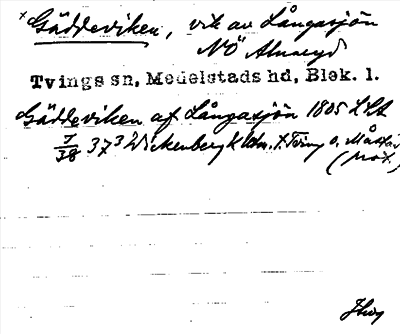 × Gäddeviken, vik av Långasjön
NÖ Alnaryd
Tvings sn, Medelstads hd, Blek. l.
Gäddeviken af Långasjön 1805 LSA
7/38 37³ Wickenberg ktn. t. Tving o. Måstad
(Mot.)